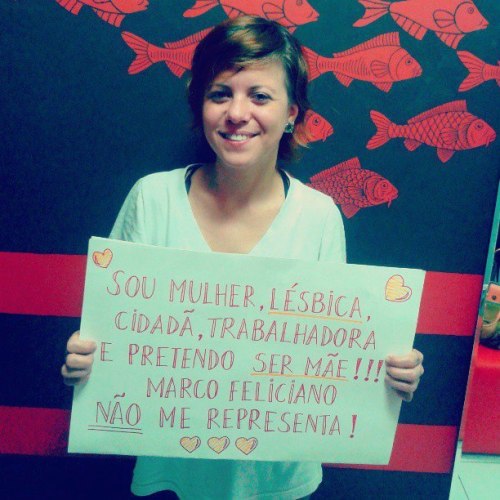 SOU MULHER, LÉSBICA,
CIDADÃ, TRABALHADORA
E PRETENDO SER MÃE!!!
MARCO FELICIANO
NÃO ME REPRESENTA!